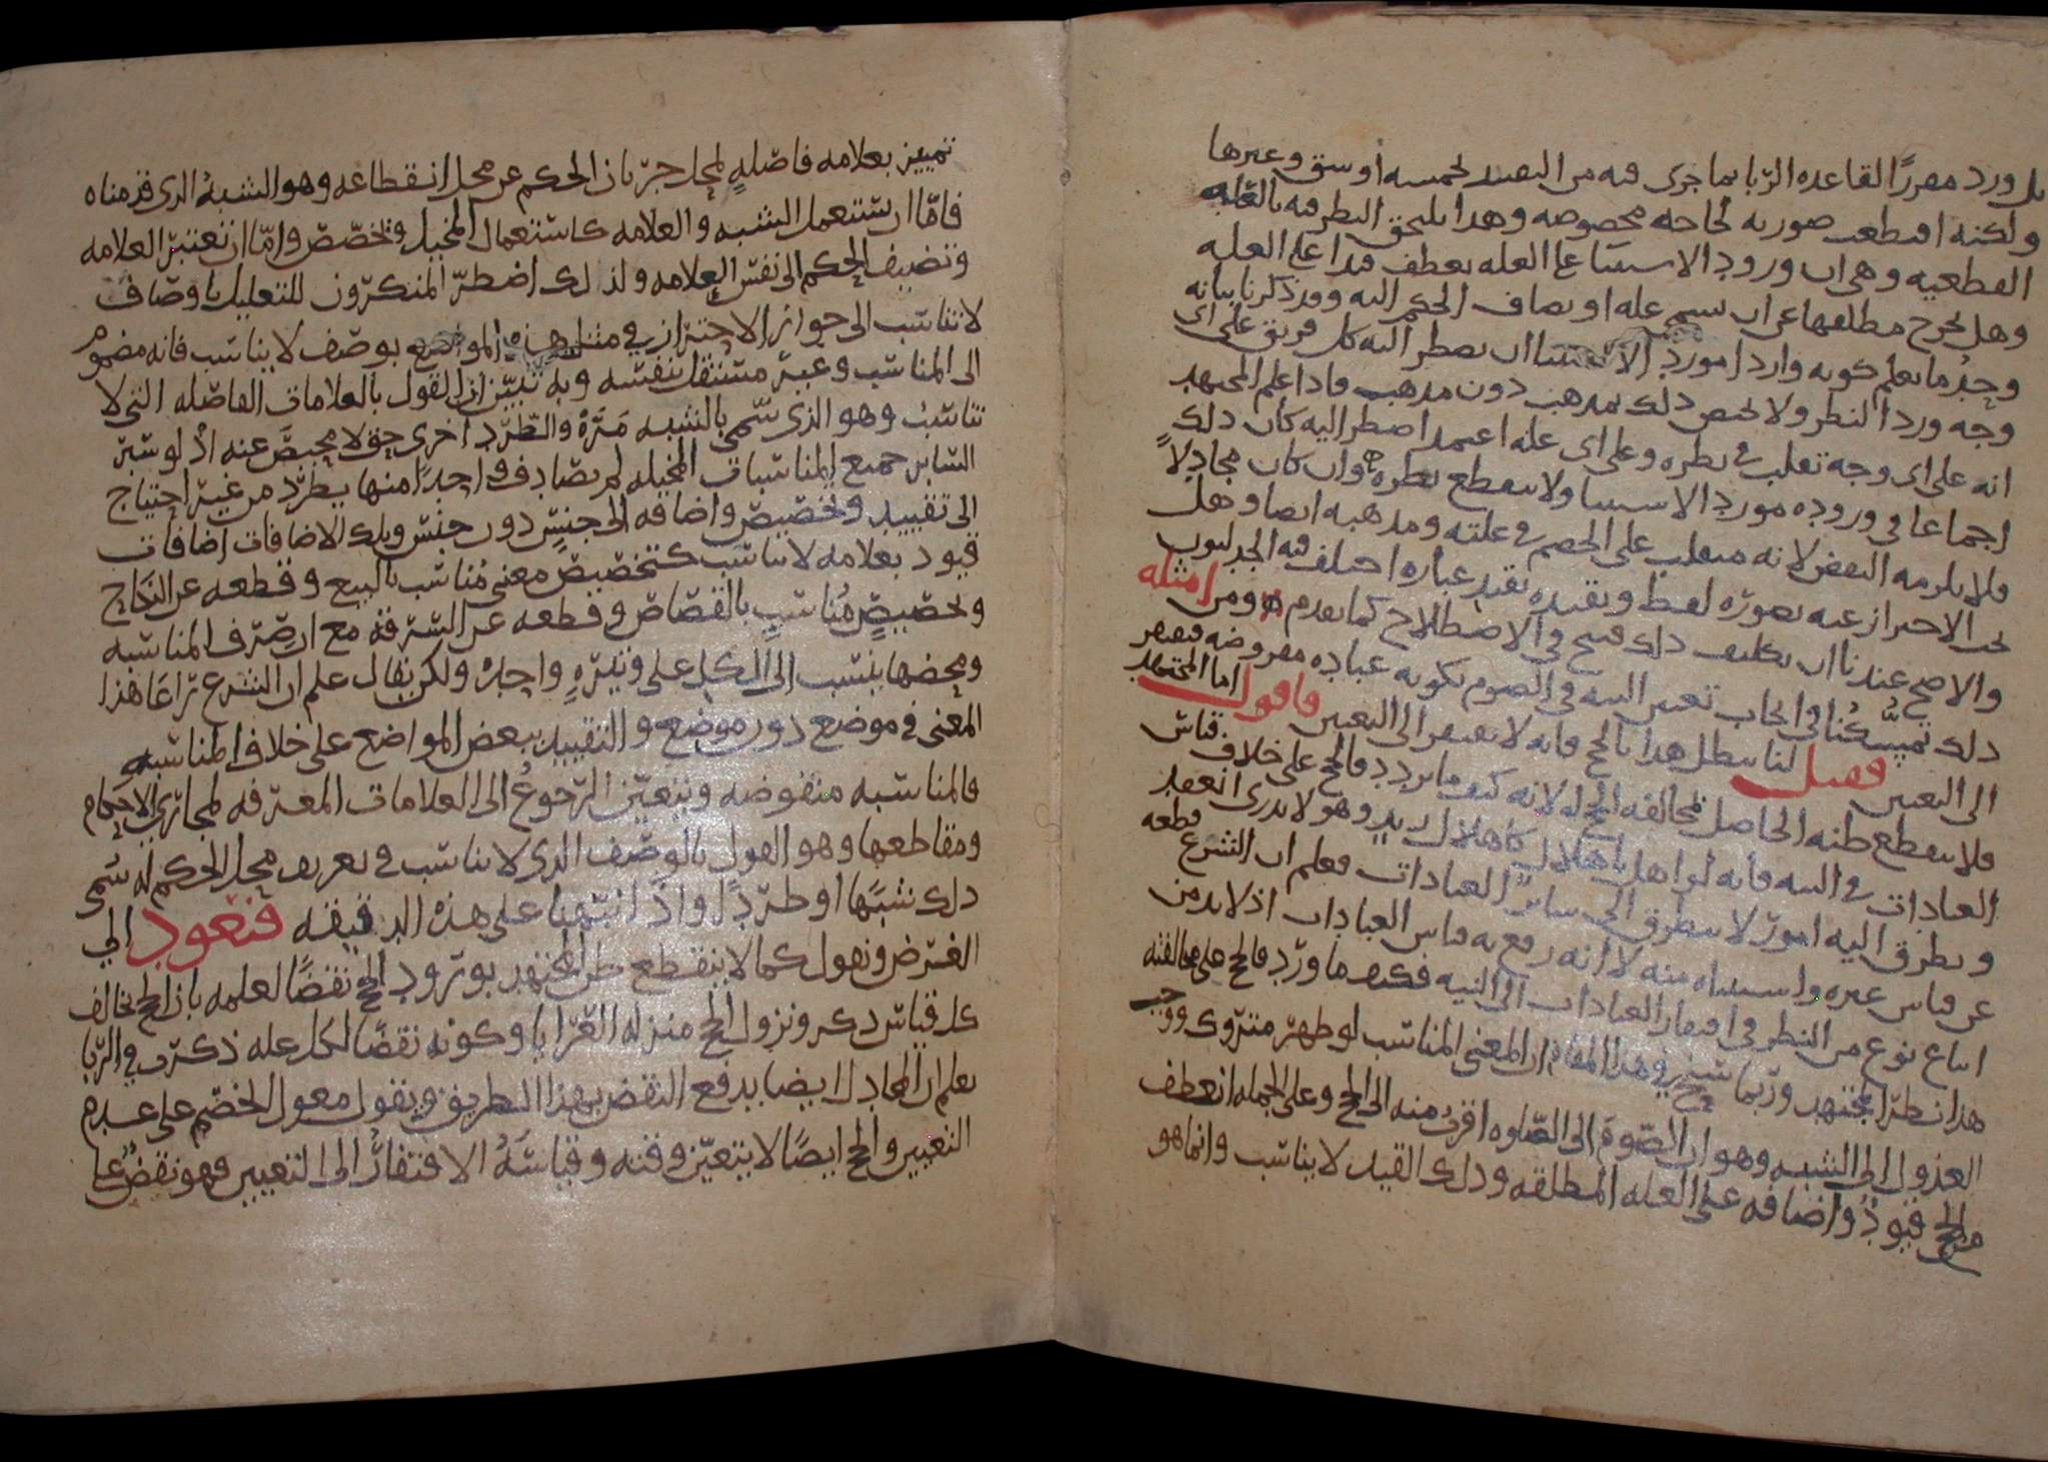 بل ورد مقررًا لقاعده الربا بما جرى فيه من التقييد لخمسه أوسق وغيرها
ولكنه اقتطعت صورته لحاجه مخصوصه وهذا يلتحق النظر فيه بالعلة
القطعيه وهى ان ورود الاستثنا على العله يعطف قيدا على العله
وهل يخرج مطلقها عن ان يسمى عله او يضاف الحكم اليه وقد ذكرنا بيانه
وحد ما يعلم كونه واردا مورد الاستثنا ان يضطر اليه كل فريق على اى
وجه ورد النظر ولا يختص ذلك بمذهب دون مذهب فاذا علم المجتهد
انه على اى وجه تقلب فى نظره وعلى اى عله اعتمد اضطر اليه كان ذلك
اجماعا فى وروده مورد الاستثنا ولا ينقطع نظره وان كان مجادلاً
فلا يلزمه النقض لانه منقلب على الخصم فى علته ومذهبه ايضا وهل
يجب الاحتراز عنه بصوره لفظ وتقيده بقيد عباره اختلف فيه الجدليون
والاصح عندنا ان تكليف ذلك قبيح فى الاصطلاح كما تقدم ومن امثله
ذلك تمسّكنا فى ايجاب تعيين النيه فى الصوم بكونه عباده مفروضه فتفتقر
الى التعيين فصل لنا يبطل هذا بالحج فانه لا يفتقر الى التعيين فاقول اما المجتهد
فلا ينقطع ظنه الحاصل بمخالفه الحج له لانه كيف ما تردد فالحج على خلاف قياس
العبادات فى النيه فانه لو اهل باهلال كاهلال زيد وهو لا يدرى انعقد
وتطرق اليه امور لا تتطرق الى سائر العبادات فعلم ان الشرع قطعه
عن قياس غيره واستثناه منه لا انه رفع به قياس العبادات اذ لا بد من
اتباع نوع من النظر فى افتقار العبادات الى النيه فكيف ما ورد فالحج على مخالفته
هذا نظر المجتهد وربما سنح فى هذا المقام ان المعنى المناسب لو ظهر متروك ووجب
العدول الى الشبه وهو ان الصوم الى الصلوه اقرب منه الى الحج وعلى الجمله انعطف
من الحج قيود واضافه على العله المطلقه وذلك القيد لا يناسب وانما هو
تمييز بعلامه فاصلهٍ لمحل جريان الحكم عن محل انقطاعه وهو الشبهُ الذى قدمناه
فامّا ان يستعمل الشبه والعلامه كاستعمال المخيل وتخصّص وامّا ان تعتبر العلامه
وتضيف الحكم الى نفس العلامه ولذلك اضطرّ المنكرون للتعليل باوصاف
لا تناسب الى جواز الاحتراز فى مثل هذه المواضع بوصف لا يناسب فانه مضموم
الى المناسب وغير مستقل بنفسه وبه تبيّن ان القول بالعلامات الفاصله التى لا
تناسب وهو الذى سمّى بالشبه مَرَّةً والطّرد اخرى حق لا محيصَ عنه اذْ لو سَبَر
السابر جميع المناسبات المخيله لم يصادف واحدًا منها يطّرد من غير احتياج
الى تقييد وتخصيص واضافه الى جنسٍ دون جنس وتلك الاضافات اضافات
قيود بعلامه لا تناسب كتخصيص معنى مُناسب بالبيع وقطعه عن النكاح
وتخصيصٍ مُناسبٍ بالقصاص وقطعه عن السّرقة مع ان صرف المناسبه
ومحضها ينسب الى الكل على وتيرهٍ واحدهْ ولكن يقال علم ان الشرع راعَا هذا
المعنى فى موضع دون موضع والتقييد ببعض المواضع على خلاف المناسبه
فالمناسبه منقوضه ويتعيّن الرجوعُ الى العلامات المعرّفه لمجارى الاحكام
ومقاطعها وهو القول بالوصف الذى لا يناسب فى تعريف محل الحكم له سُمى
ذلك شبهًا او طردًا واذ انتهينا على هذه الدقيقه فنعود الى
الغرض ونقول كما لا ينقطع ظن المجتهد بورود الحج نقضًا لعلمه بان الحج تخالف
كل قياس ذكر ونزول الحج منزله العرايا وكونه نقضًا لكل عله ذكرت فى الربا
يعلم ان المجادل ايضا يدفع النقض بهذا الطريق ويقول معول الخصم على عدم
التعيين والحج ايضًا لا يتعيّن وقته وقياسَهُ الافتقارُ الى التعيين فهو نقضٌ على